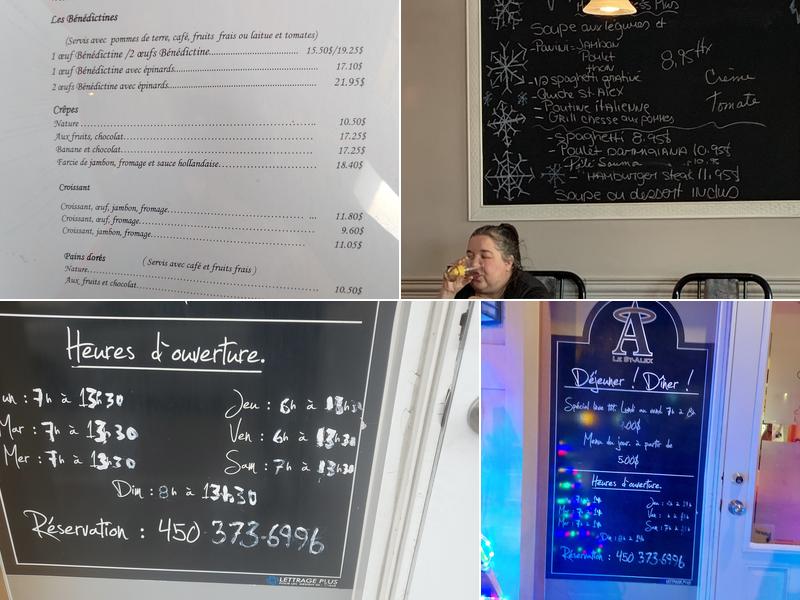 Les Bénédictines
(Servis avec pommes de terre, café, fruits frais ou laitue et tomates)
1 œuf Bénédictine /2 œufs Bénédictine 15.50$/19.25$
1 œuf Bénédictine avec épinards 17.10$
2 œufs Bénédictine avec épinards 21.95$
Crêpes
Nature 10.50$
Aux fruits, chocolat 17.25$
Banane et chocolat 17.25$
Farcie de jambon, fromage et sauce hollandaise 18.40$
Croissant
Croissant, œuf, jambon, fromage 11.80$
Croissant, œuf, fromage 9.60$
Croissant, jambon, fromage 11.05$
Pains dorés (Servis avec café et fruits frais)
Nature 10.50$
Aux fruits et chocolat
Plus
Soupe aux légumes et
- Panini = Jambon
Poulet
thon
8,95
Crème
Tomate
- 1/2 spaghetti gratiné
- Quiche St. Alex
- Poutine italienne
- Grill cheese aux pommes
- Spaghetti 8.95$
- Poulet 10.95$
- Hamburger Steak 11.95$
Soupe ou dessert inclus
Heures d'ouverture.
un : 7h à 13h30
Mar : 7h à 13h30
Mer : 7h à 13h30
Jeu : 6h à 13h30
Ven : 6h à 13h30
Sam : 7h à 13h30
Dim : 8h à 13h30
Réservation : 450 373-6996
LETTRAGE PLUS
A
LE ST-ALEX
Déjeuner ! Dîner !
Spécial lève Lundi au vend 7h à 8h
.00$
Menu du jour. à partir de
5.00$
Heures d'ouverture.
Mar : 7h à 14h
Mer : 7h à 14h
Jeu :
Ven :
Sam :
Dim : 8h à 14h
Réservation : 450 373-6996
LETTRAGE PLUS